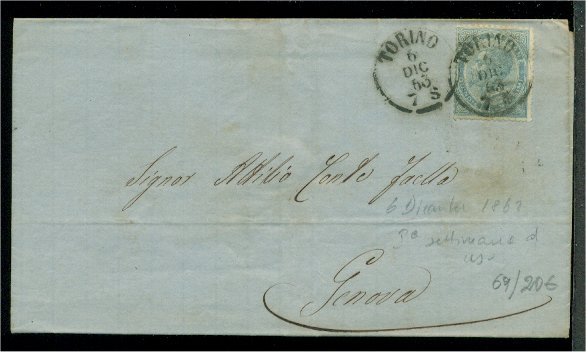 TORINO
6
DIC
63
7 S
TORINO
6
DIC
63
7 S
Signor Attilio Conte
Genova
6 Dicembre 1863
3a settimana d
uso
69/206